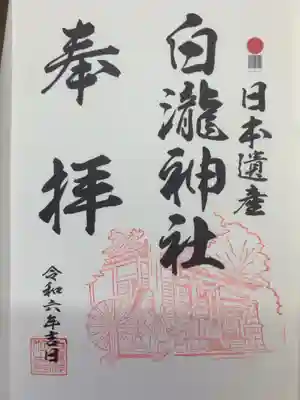 日本遺産
白瀧神社
奉拝
令和六年吉日